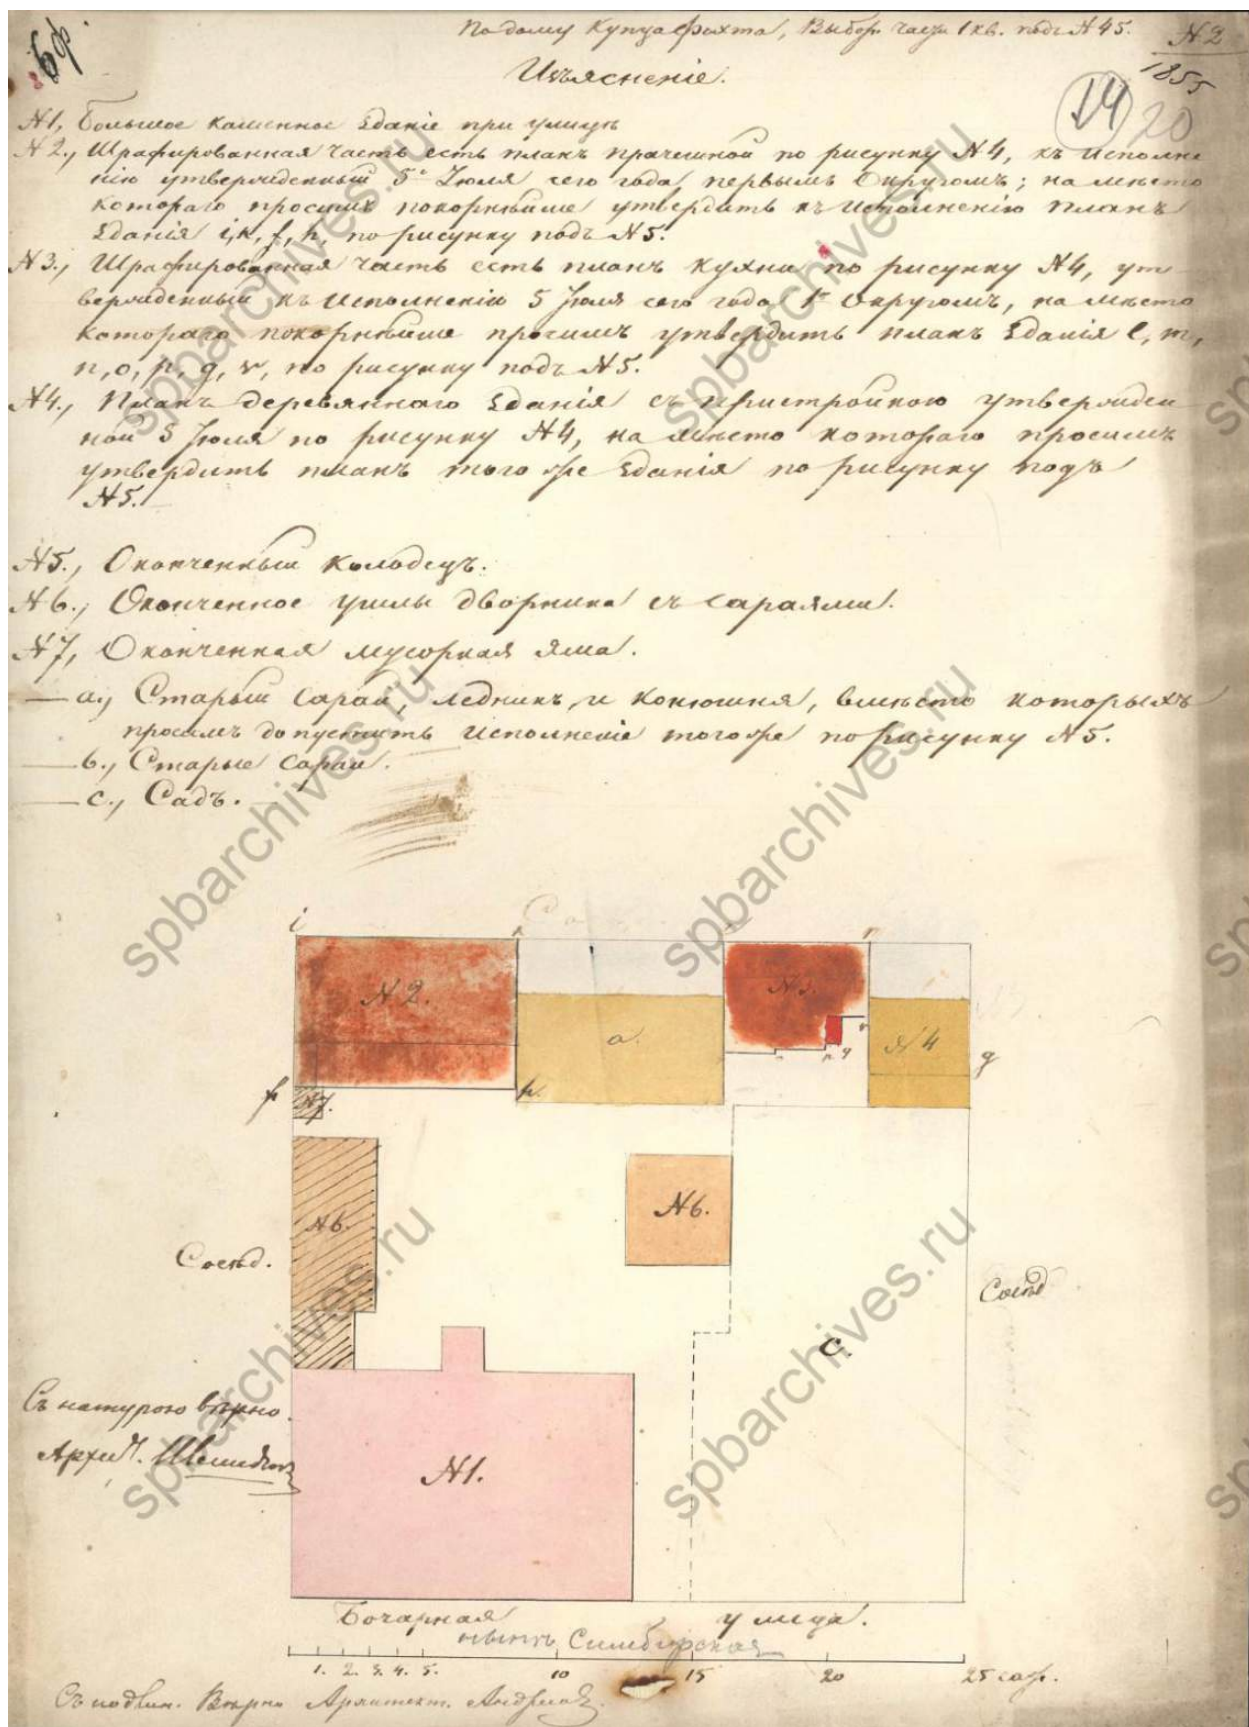 По дому Купца Фохта, Выбор. части 1 кв. подъ №45.
№2
1855
14
20
Изъясненіе.
№1, Большое каменное зданіе при улицѣ
№2., Штрафированная часть есть планъ прачешной по рисунку №4, къ исполне
нію утвержденный 5го Іюля сего года, первымъ Округомъ; на мѣсто
котораго просимъ покорнѣйше утвердить къ исполненію планъ
зданія i, k, f, h, по рисунку подъ №5.
№3., Штрафированная часть есть планъ кухни по рисунку №4, ут-
вержденный къ исполненію 5 Іюля сего года 1мъ Округомъ, на мѣсто
котораго покорнѣйше просимъ утвердить планъ зданія l, m,
n, o, p, q, r, по рисунку подъ №5.
№4., Планъ деревяннаго зданія съ пристройкою утвержден
ной 5 Іюля по рисунку №4, на мѣсто котораго просимъ
утвердить планъ того же зданія по рисунку подъ
№5.
№5., Оконченный колодецъ.
№6., Оконченное дворника съ сараями.
№7, Оконченная мусорная яма.
— a., Старый сарай, ледникъ, и конюшня, вмѣсто которыхъ
просимъ допустить исполненіе того же по рисунку №5.
— b., Старые сараи.
— c., Садъ.
i
r
№2.
a.
№3.
p. q
№4
g
f
h.
№7.
№6.
№6.
Сосѣд.
Сосѣд
c.
Съ натурою вѣрно.
Архит.
№1.
Бочарная улица.
нынѣ Симбирская
1. 2. 3. 4. 5. 10 15 20 25 саж.
Съ подлин. Вѣрно Архитект.
spbarchives.ru
spbarchives.ru
spbarchives.ru
spbarchives.ru
spbarchives.ru
spbarchives.ru